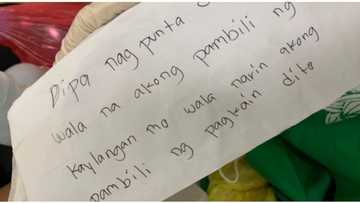 Dipa nag punta
wala na akong pambili ng
kaylangan mo wala narin akong
pambili ng pagkain dito